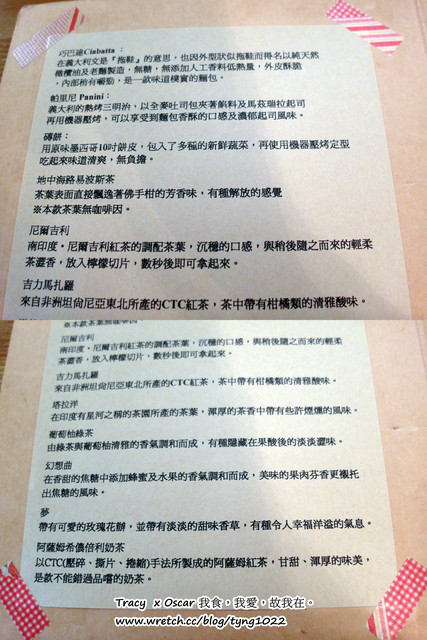 巧巴達Ciabatta：
在義大利文是『拖鞋』的意思，也因外型狀似拖鞋而得名以純天然
橄欖油及老麵製造，無糖，無添加人工香料低熱量，外皮酥脆
，內部稍有嚼勁，是一款味道樸實的麵包。
帕里尼 Panini：
義大利的熱烤三明治，以全麥吐司包夾著餡料及馬茲瑞拉起司
再用機器壓烤，可以享受到麵包香酥的口感及濃郁起司風味。
磚餅：
用原味墨西哥10吋餅皮，包入了多種的新鮮蔬菜，再使用機器壓烤定型
吃起來味道清爽，無負擔。
地中海路易波斯茶
茶葉表面直接飄逸著佛手柑的芳香味，有種解放的感覺
※本款茶葉無咖啡因。
尼爾吉利
南印度‧尼爾吉利紅茶的調配茶葉，沉穩的口感，與稍後隨之而來的輕柔
茶澀香，放入檸檬切片，數秒後即可拿起來。
吉力馬扎羅
來自非洲坦尚尼亞東北所產的CTC紅茶，茶中帶有柑橘類的清雅酸味。
※本款茶葉無咖啡因
尼爾吉利
南印度‧尼爾吉利紅茶的調配茶葉，沉穩的口感，與稍後隨之而來的輕柔
茶澀香，放入檸檬切片，數秒後即可拿起來。
吉力馬扎羅
來自非洲坦尚尼亞東北所產的CTC紅茶，茶中帶有柑橘類的清雅酸味。
塔拉洋
在印度有星河之稱的茶園所產的茶葉，渾厚的茶香中帶有些許煙燻的風味。
葡萄柚綠茶
由綠茶與葡萄柚清雅的香氣調和而成，有種隱藏在果酸後的淡淡澀味。
幻想曲
在香甜的焦糖中添加蜂蜜及水果的香氣調和而成，美味的果肉芬香更襯托
出焦糖的風味。
夢
帶有可愛的玫瑰花辦，並帶有淡淡的甜味香草，有種令人幸福洋溢的氣息。
阿薩姆希儂倍利奶茶
以CTC(壓碎、撕片、捲縮)手法所製成的阿薩姆紅茶，甘甜、渾厚的味美，
是款不能錯過品嚐的奶茶。
Tracy x Oscar 我食，我愛，故我在。
www.wretch.cc/blog/tyng1022